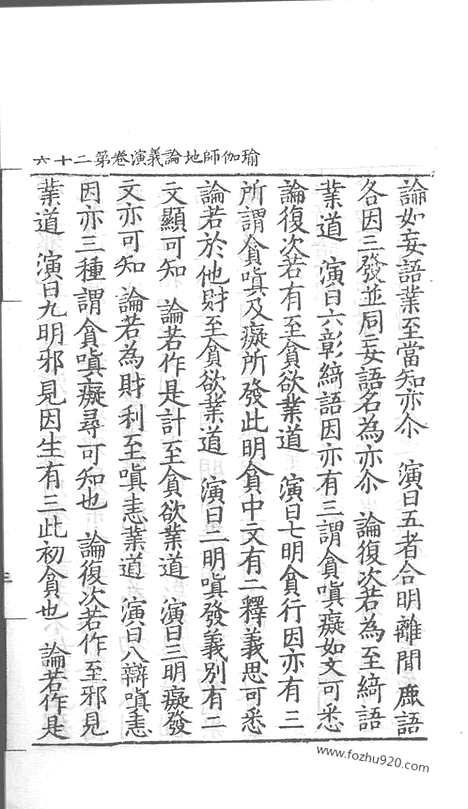 瑜伽師地論義演卷第二十六
論如妄語業至當知亦尒 演曰五者合明離間麁語
各因三發並同妄語名為亦尒 論復次若為至綺語
業道 演曰六彰綺語因亦有三謂貪嗔癡如文可悉
論復次若有至貪欲業道 演曰七明貪行因亦有三
所謂貪嗔及癡所發此明貪中文有二釋義思可悉
論若於他財至貪欲業道 演曰二明嗔發義別有二
文顯可知 論若作是計至貪欲業道 演曰三明癡發
文亦可知 論若為財利至嗔恚業道 演曰八辯嗔恚
因亦三種謂貪嗔癡尋可知也 論復次若作至邪見
業道 演曰九明邪見因生有三此初貪也 論若作是
三
www.fozhu920.com